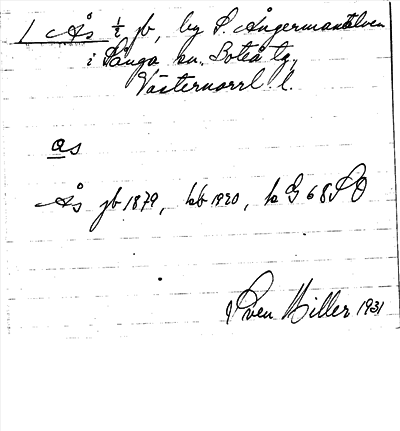 1 Ås ½ jb, by S. Ångermanälven
i Sånga sn. Boteå tg.
Västernorrl. l.
as
Ås jb 1879, kb 1920, k G 68 SO
Sven Hiller 1931